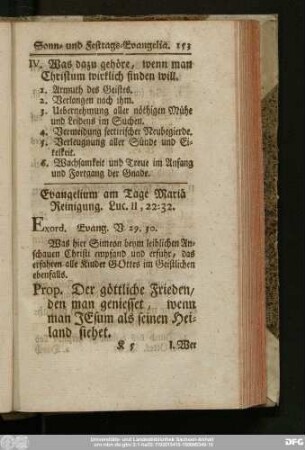 Sonn- und Festtags-Evangelia. 153
IV. Was dazu gehöre, wenn man
Christum wirklich finden will.
1. Armuth des Geistes.
2. Verlangen nach ihm.
3. Uebernehmung aller nöthigen Mühe
und Leidens im Suchen.
4. Vermeidung sectirischer Neubegierde.
5. Verleugnung aller Sünde und Ei-
telkeit.
6. Wachsamkeit und Treue im Anfang
und Fortgang der Gnade.
Evangelium am Tage Mariä
Reinigung. Luc. II, 22-32.
Exord. Evang. V. 29. 30.
Was hier Simeon beym leiblichen An-
schauen Christi empfand und erfuhr, das
erfahren alle Kinder GOttes im Geistlichen
ebenfalls.
Prop. Der göttliche Frieden/
den man geniesset, wenn
man JEsum als seinen Hei-
land siehet.
K 5 I. Wer
Universitäts- und Landesbibliothek Sachsen-Anhalt
DFG